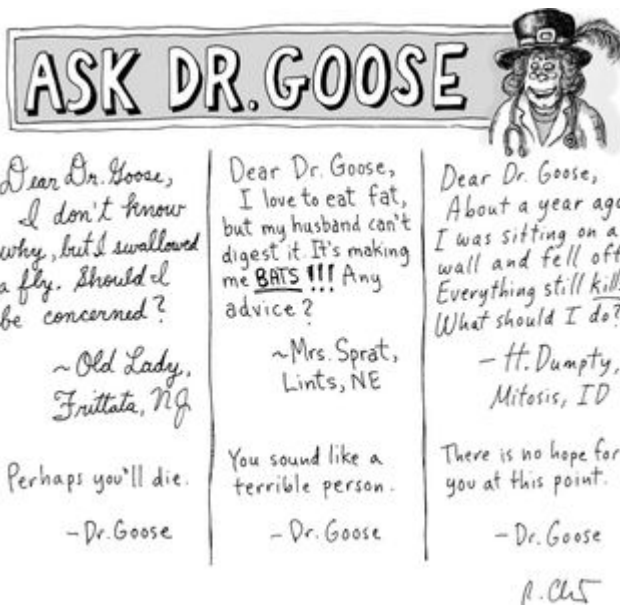 ASK DR. GOOSE
Dear Dr. Goose,
I don't know
why, but I swallowed
a fly. Should I
be concerned?
~ Old Lady,
Frittata, NJ
Perhaps you'll die.
- Dr. Goose
Dear Dr. Goose,
I love to eat fat,
but my husband can't
digest it. It's making
me BATS!!! Any
advice?
~ Mrs. Sprat,
Lints, NE
You sound like a
terrible person.
- Dr. Goose
Dear Dr. Goose,
About a year ago
I was sitting on a
wall and fell off.
Everything still kills.
What should I do?
- H. Dumpty,
Mitosis, ID
There is no hope for
you at this point.
- Dr. Goose